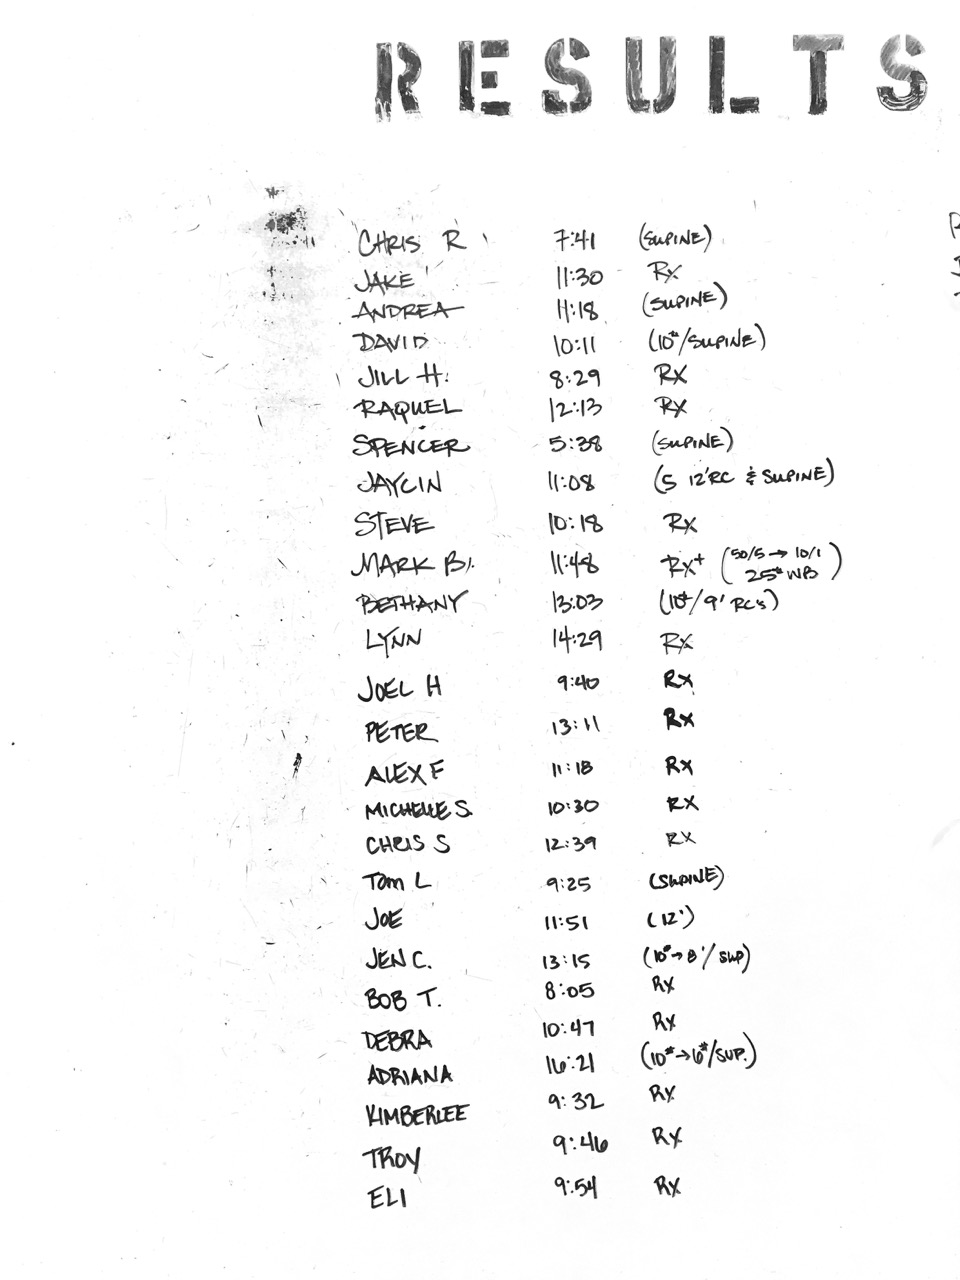 RESULTS
CHRIS R 7:41 (SUPINE)
JAKE 11:30 Rx
ANDREA 11:18 (SUPINE)
DAVID 10:11 (10#/SUPINE)
JILL H. 8:29 RX
RAQUEL 12:13 RX
SPENCER 5:38 (SUPINE)
JAYCIN 11:08 (5 12'RC & SUPINE)
STEVE 10:18 Rx
MARK B. 11:48 Rx+ (50/5 → 10/1
25# WB)
BETHANY 13:03 (10#/9' RC's)
LYNN 14:29 Rx
JOEL H 9:40 Rx
PETER 13:11 Rx
ALEX F 11:18 Rx
MICHELLE S. 10:30 RX
CHRIS S 12:39 RX
Tom L 9:25 (SUPINE)
JOE 11:51 (12')
JEN C. 13:15 (10#→8'/SUP)
BOB T. 8:05 Rx
DEBRA 10:47 Rx
ADRIANA 16:21 (10#→6#/SUP.)
KIMBERLEE 9:32 Rx
TROY 9:46 Rx
ELI 9:54 Rx